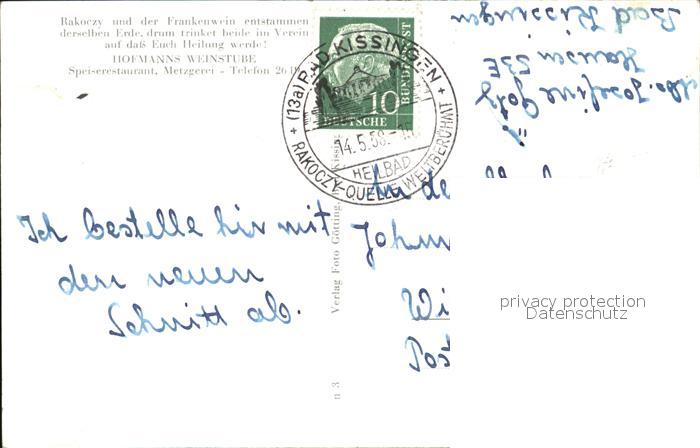 Rakoczy und der Frankenwein entstammen
derselben Erde, drum trinket beide im Verein
auf daß Euch Heilung werde!
HOFMANNS WEINSTUBE
Speiserestaurant, Metzgerei - Telefon 26
DEUTSCHE BUNDESPOST
10
(13a) BAD KISSINGEN
14.5.58
HEILBAD
RAKOCZY-QUELLE WELTBERÜHMT
Abs. Josefine
Hausen 53E
Bad Kissingen
Ich bestelle hir mit
den neuen
Schnitt ab.
Verlag Foto Götting,
n 3
An de
Joh
Wi
Post
privacy protection
Datenschutz